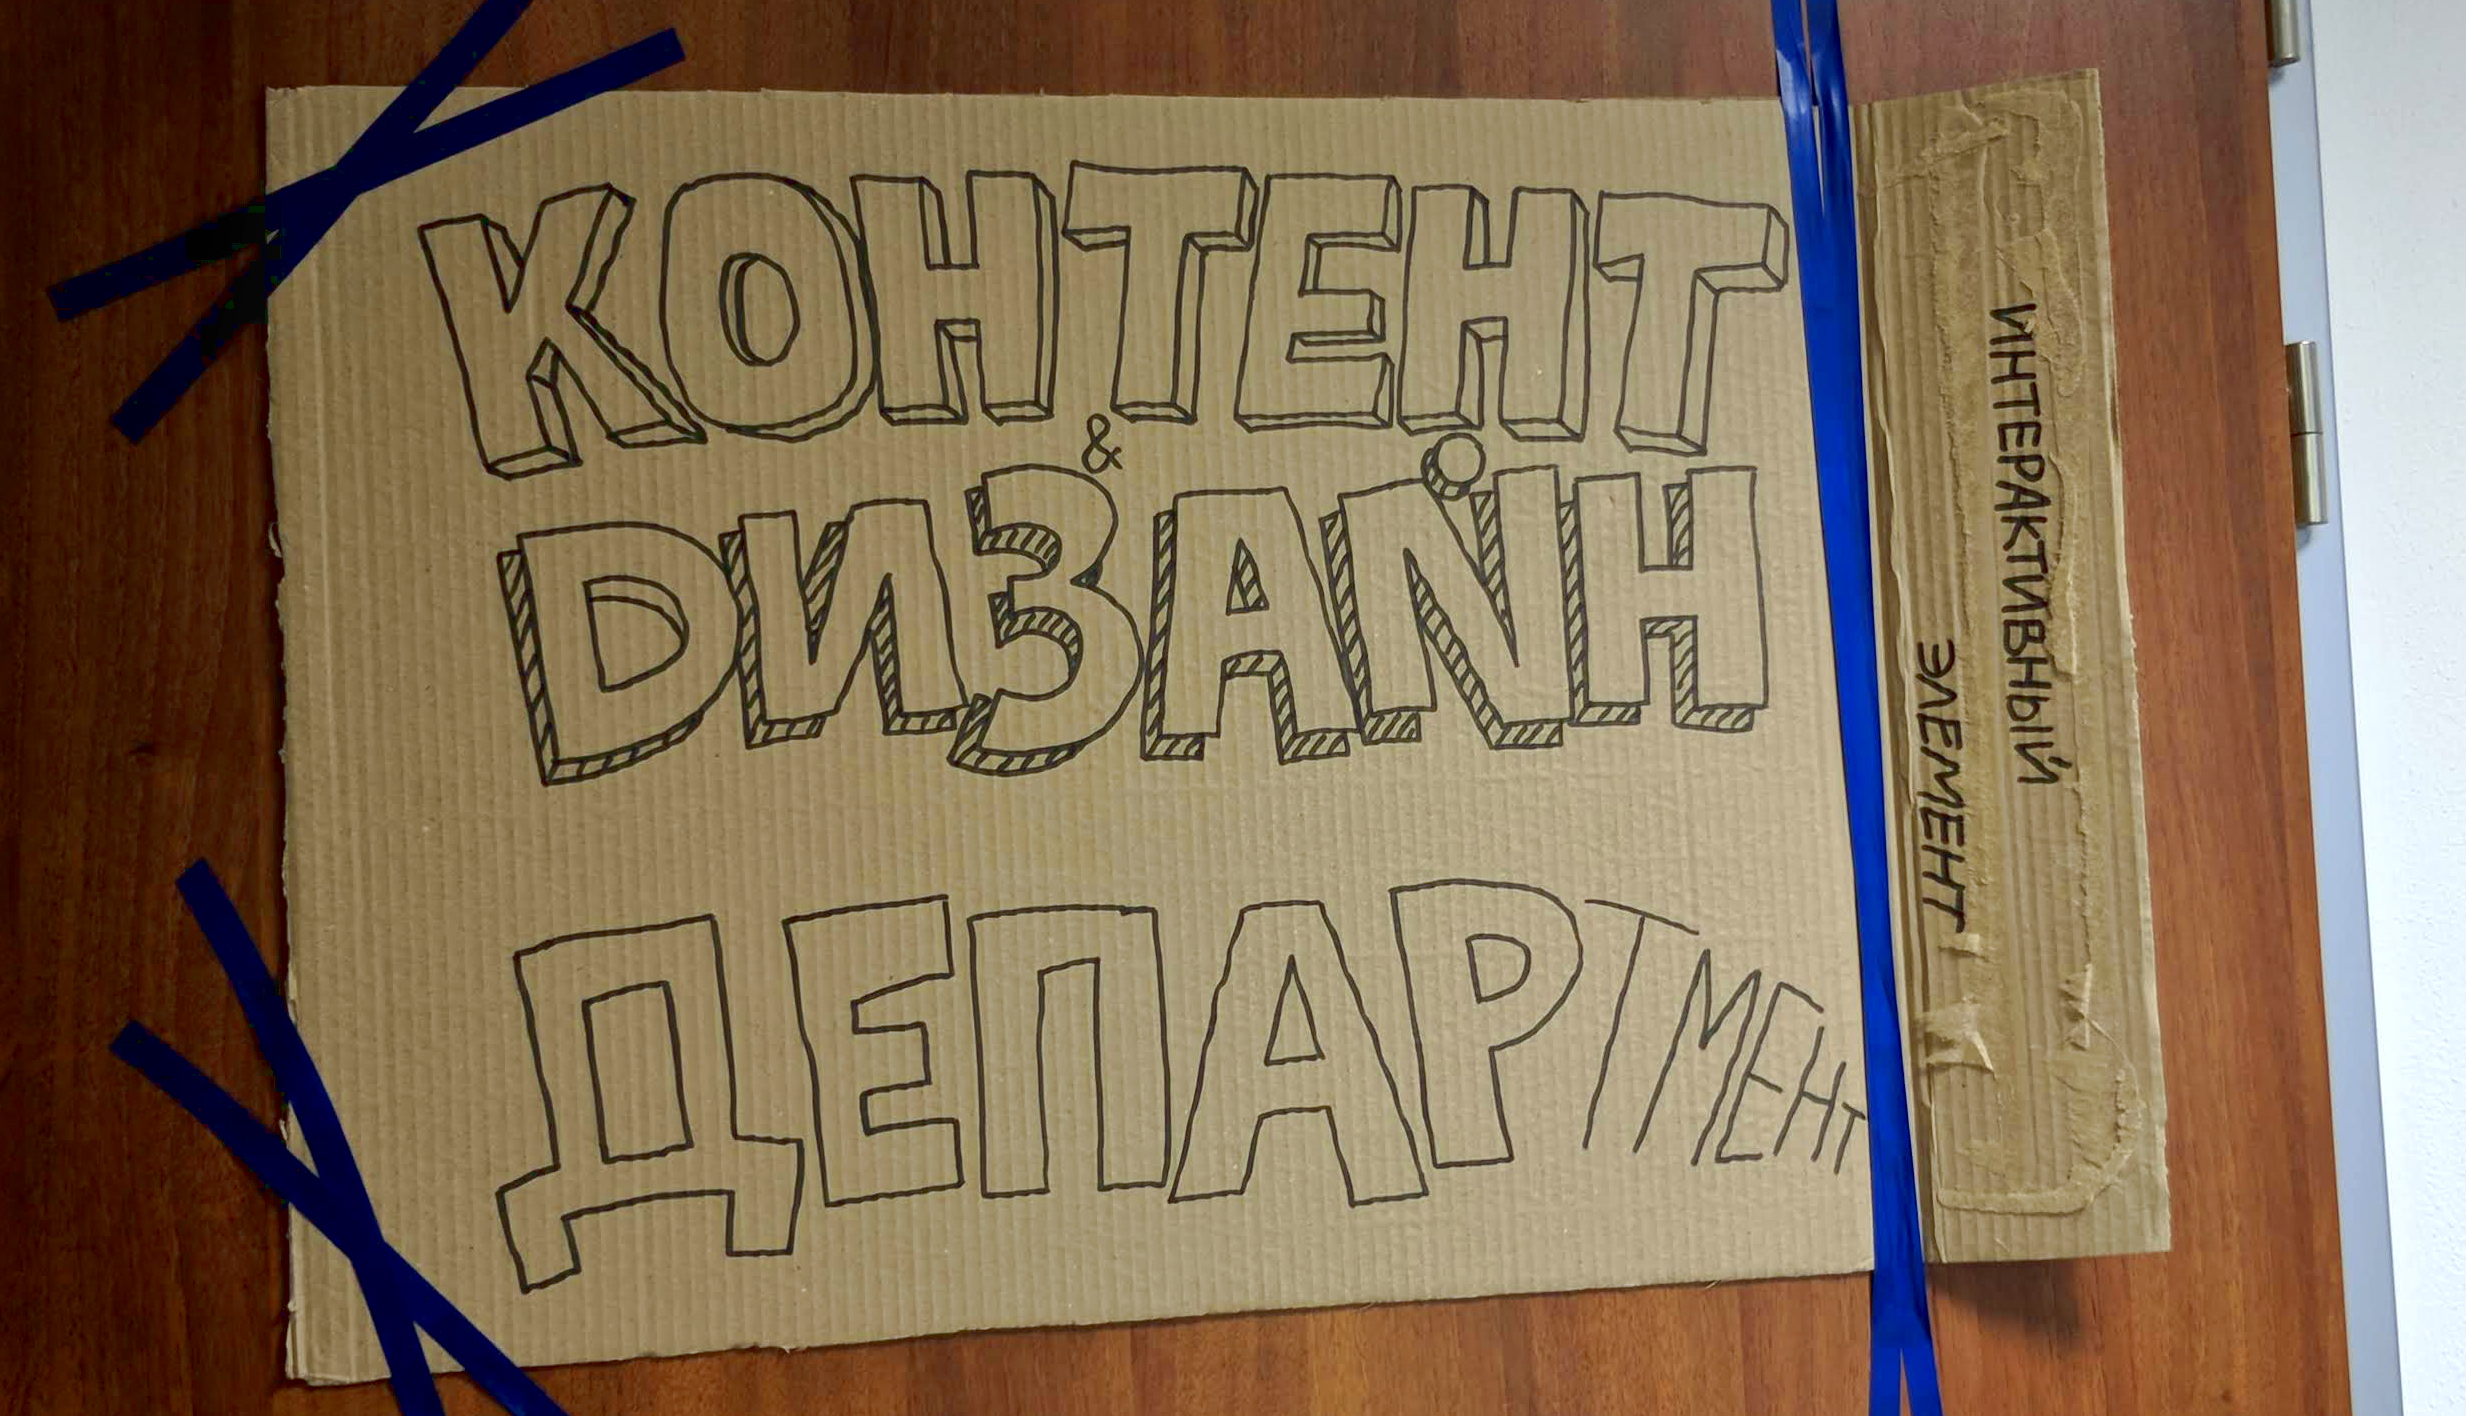 КОНТЕНТ
&
DИЗАЙН
ДЕПАРТМЕНТ
ИНТЕРАКТИВНЫЙ
ЭЛЕМЕНТ